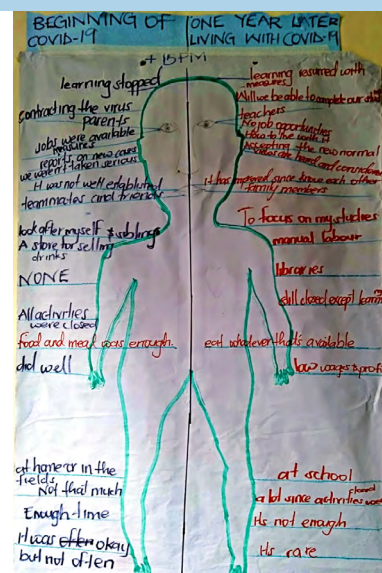 BEGINNING OF
COVID-19
ONE YEAR LATER
LIVING WITH COVID-19
learning stopped
contracting the virus
parents
Jobs were available
measures
reports on new cases
we weren't taken serious
It was not well established
teammates and friends
look after myself & siblings
A store for selling
drinks
NONE
All activities
were closed
food and meat was enough.
did well
at home or in the
fields
Not that much
Enough-time
It was often okay
but not often
learning resumed with
measures
Will we be able to complete our
teachers
No job opportunities
How to live with it
Accepting the new normal
are heard and considered
It has improved since know each other
family members
To focus on my studies
manual labour
libraries
still closed except
eat whatever that's available
low wages &
at school
closed
a lot since activities
Its not enough
Its rare